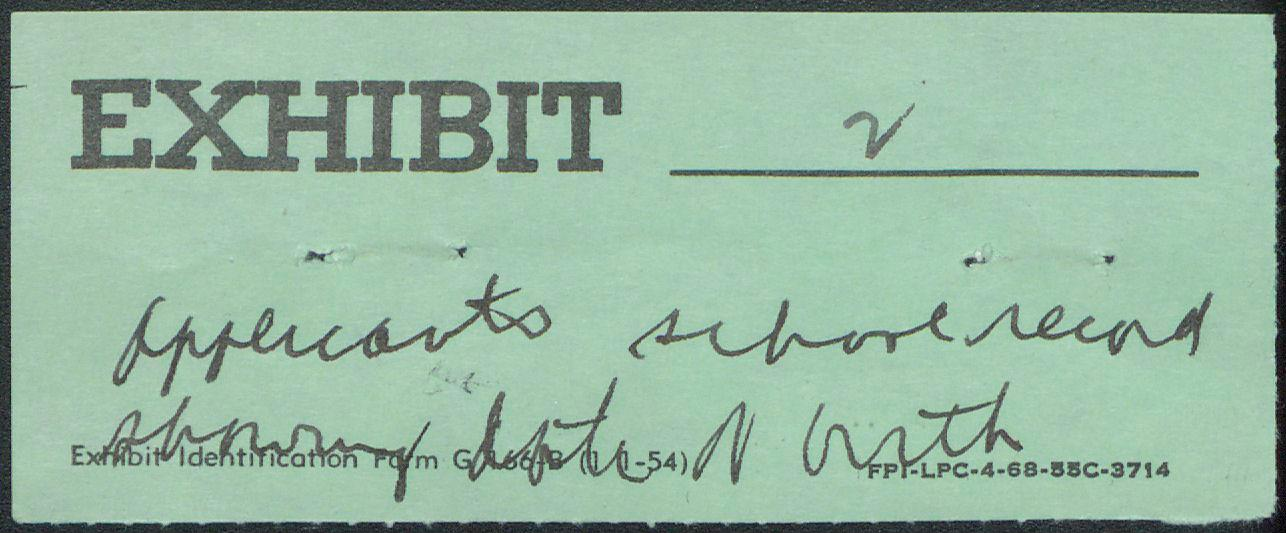 EXHIBIT 2
applicants school record
showing date of birth
Exhibit Identification Form G-166-B (1-1-54)
FPI-LPC-4-68-55C-3714